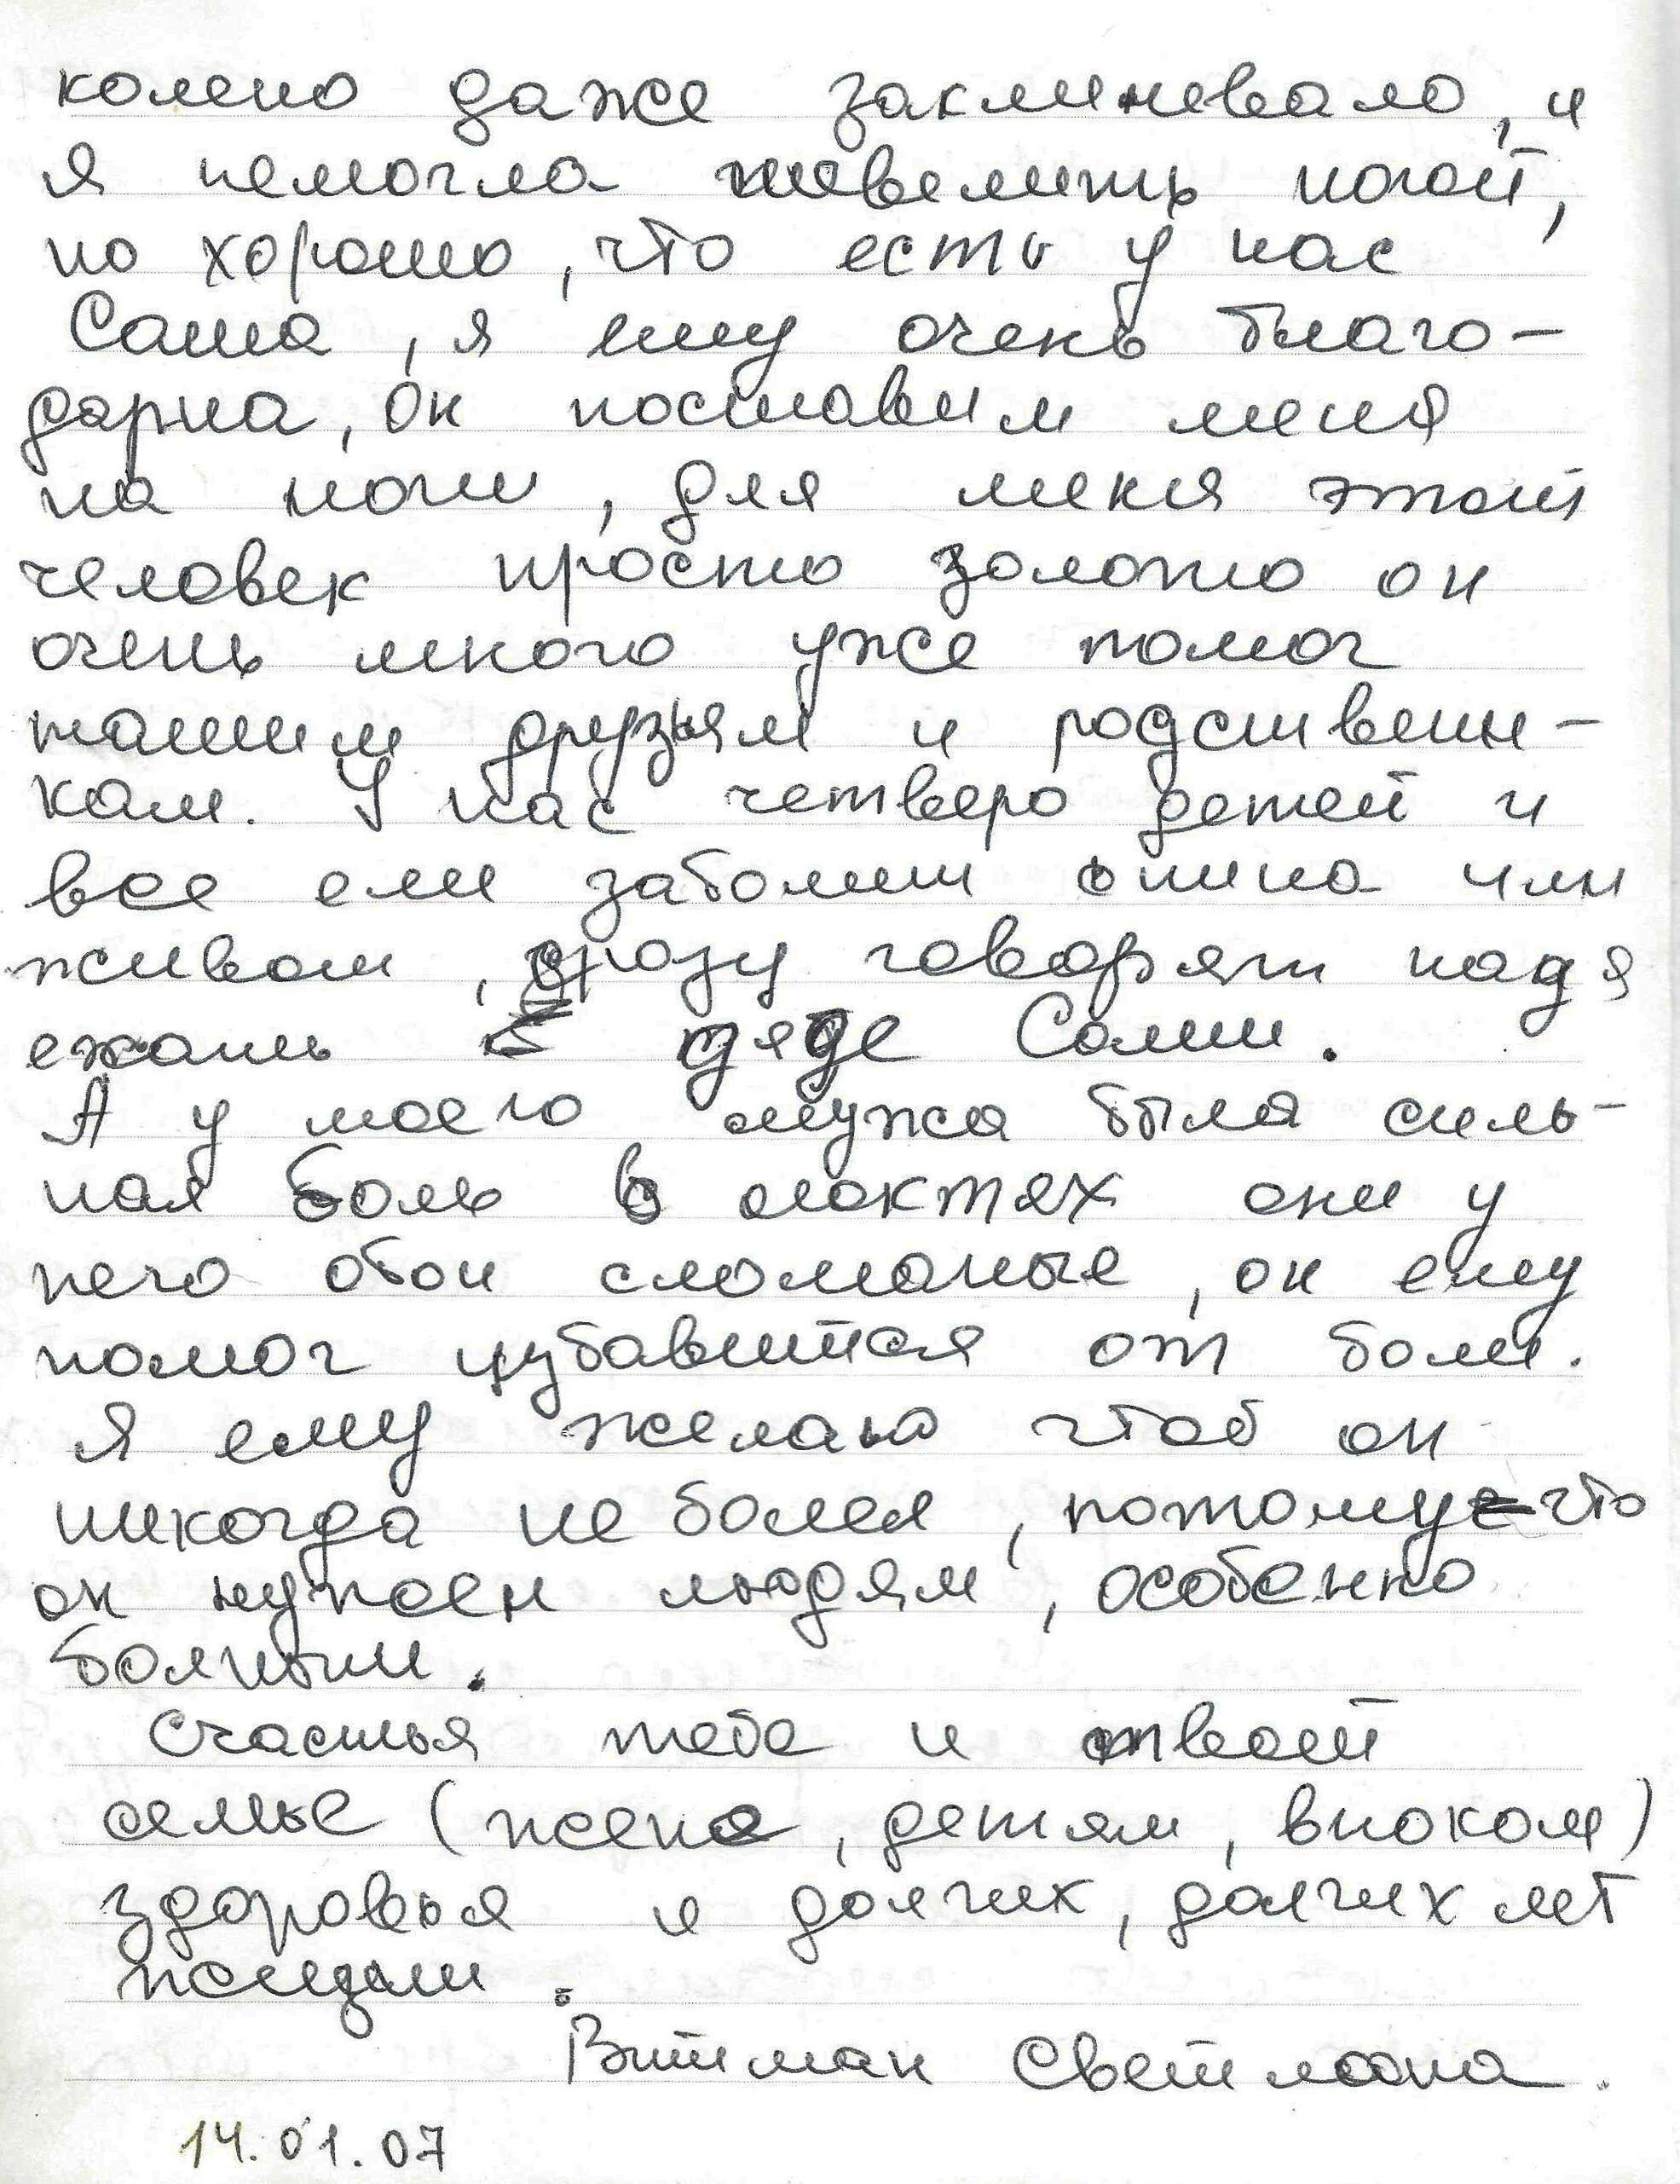 колено даже заклиневало, и
я немогла шевелить ногой,
но хорошо, что есть у нас
Саша, я ему очень благо-
дарна, он поставим меня
на ноги, для меня этот
человек просто золото он
очень много уже помог
нашим друзьям и родственн-
кам. У нас четверо детей и
все ели заболит спина или
живот, сразу говорят надя
ехать к дяде Саши.
А у моего мужа была силь-
ная боль в локтях они у
него обои сломаные, он ему
помог избавится от боли.
Я ему желаю чтоб он
никогда не болел, потому-что
он нужен людям, особенно
больным.
Счастья тебе и твоей
семье (жене, детям, внокам)
здоровья и долгих, долгих лет
жизни.
Витман Светлана.
14.01.07